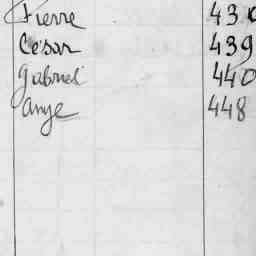 Pierre 430
César 439
Gabriel 440
Ange 448